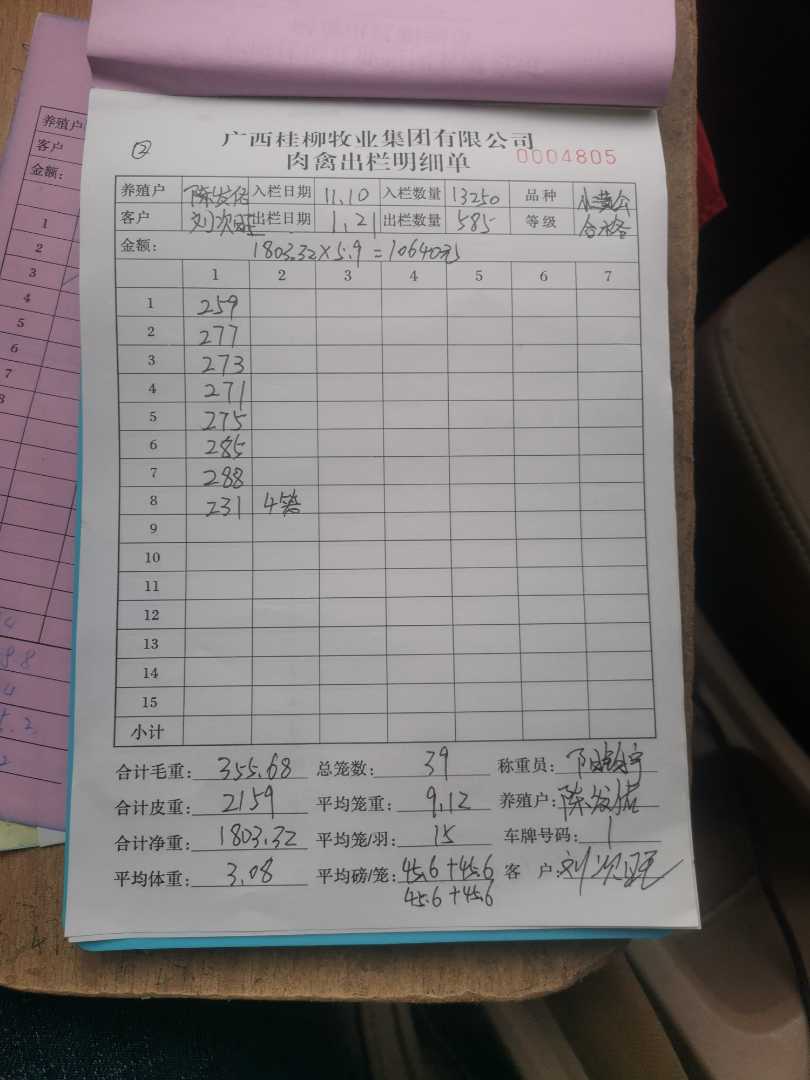 ②
广西桂柳牧业集团有限公司
肉禽出栏明细单 0004805
养殖户 陈发佑 入栏日期 11.10 入栏数量 13250 品种 小黄公
客户 刘次旺 出栏日期 1.21 出栏数量 585 等级 合格
金额： 1803.32×5.9=10640元
1 2 3 4 5 6 7
1 259
2 277
3 273
4 271
5 275
6 285
7 288
8 231 4笼
9
10
11
12
13
14
15
小计
合计毛重： 355.68 总笼数： 39 称重员：
合计皮重： 2159 平均笼重： 9.12 养殖户： 陈发佑
合计净重： 1803.32 平均笼/羽： 15 车牌号码： 1
平均体重： 3.08 平均磅/笼： 45.6+45.6 客 户： 刘次旺
45.6+45.6
养殖户
客户
金额：
1
2
3
4
5
6
7
8